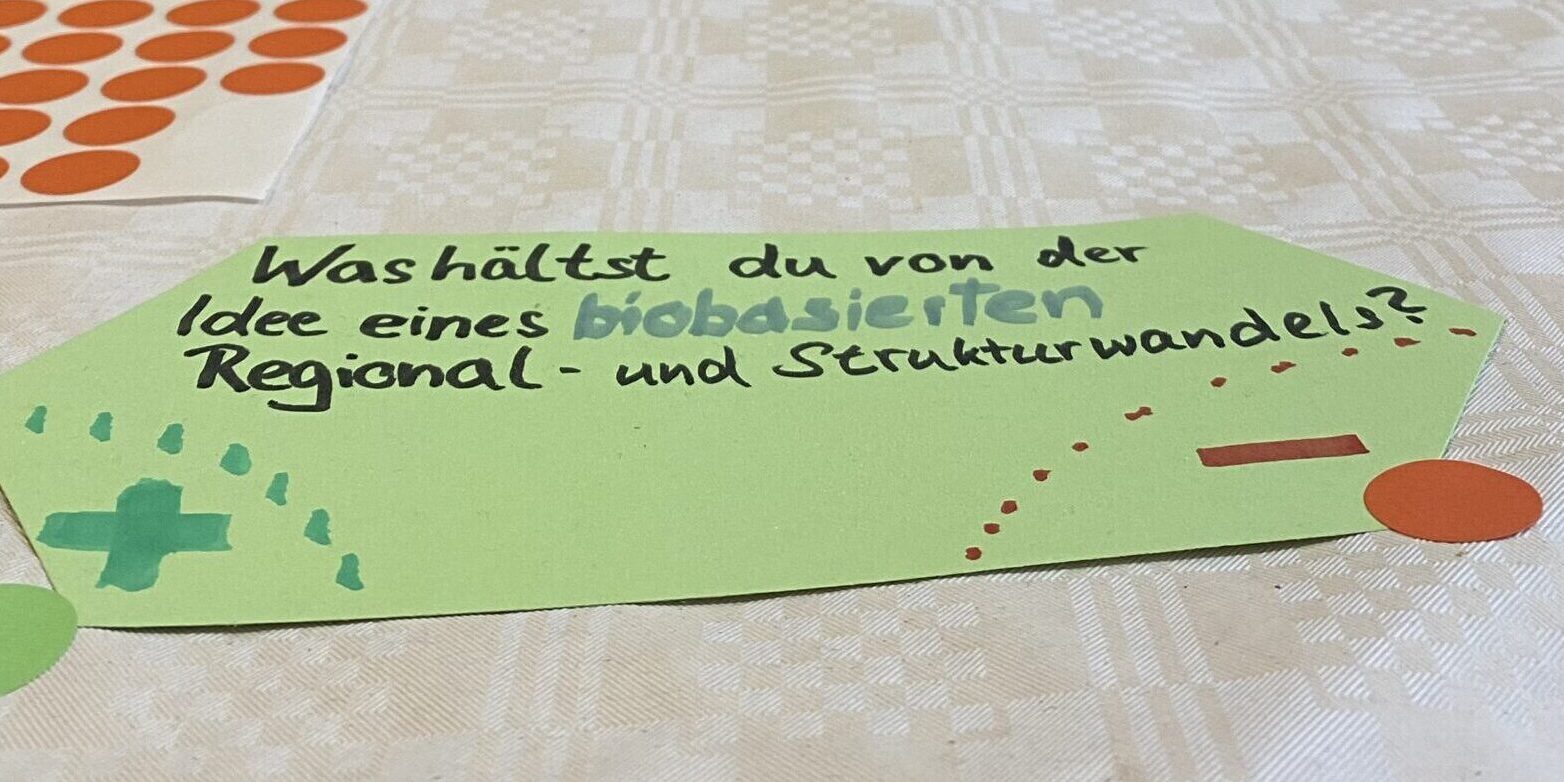 Was hältst du von der
Idee eines biobasierten
Regional- und Strukturwandels?